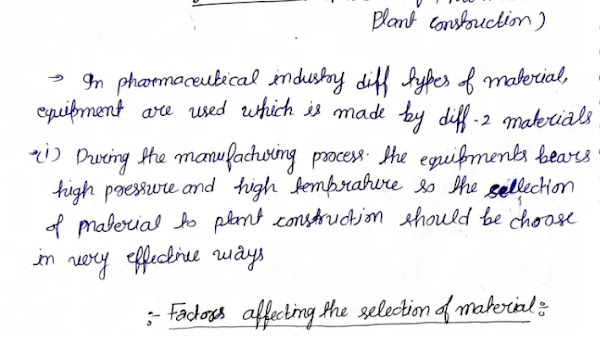 Plant construction)
→ In pharmaceutical industry diff types of material,
equipment are used which is made by diff-2 materials
→(i) During the manufacturing process. the equipments bears
high pressure and high temprature so the sellection
of material to plant construction should be choose
in very effective ways
:- Factors affecting the selection of material :-